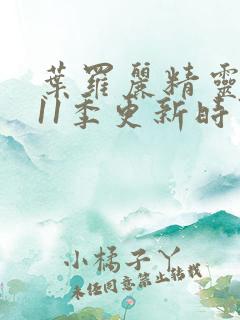 葉羅麗精靈
11季更新時
小橘子丫
未經同意禁止轉載